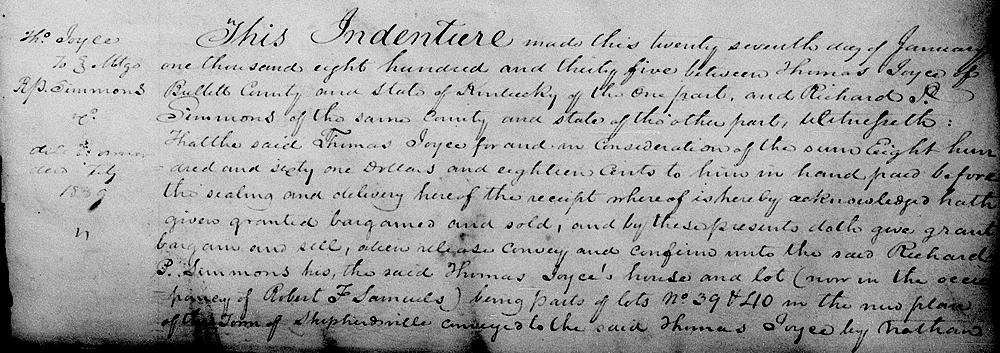 This Indenture made this twenty seventh day of January
one thousand eight hundred and thirty five between Thomas Joyce of
Bullitt County and state of Kentucky of the one part, and Richard P.
Simmons of the same County and state of the other part, Witnesseth:
That the said Thomas Joyce for and in Consideration of the sum Eight hun
dred and sixty one Dollars and eighteen Cents to him in hand paid before
the sealing and delivery here of the receipt where of is here by acknowledged hath
given granted bargained and sold, and by these presents doth give grant
bargain and sell, alien release convey and confirm unto the said Richard
P. Simmons his, the said Thomas Joyce's house and lot (now in the occu
-pancy of Robert F Samuels) being parts of lots No 39 & 40 in the new plan
of the Town of Shepherdsville conveyed to the said Thomas Joyce by Nathan
Tho. Joyce
To } Mtg
R. P. Simmons
1839